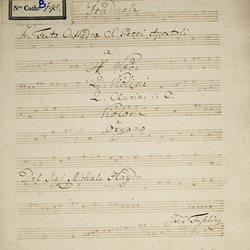 Nro Cath. B 195.
Graduale
In Festo Cathedra S. Petri Apostoli
a
4 Voci
2 Violini
2. Clarini in C.
Violone
e
Organo
Del Sigl Michele Haydn